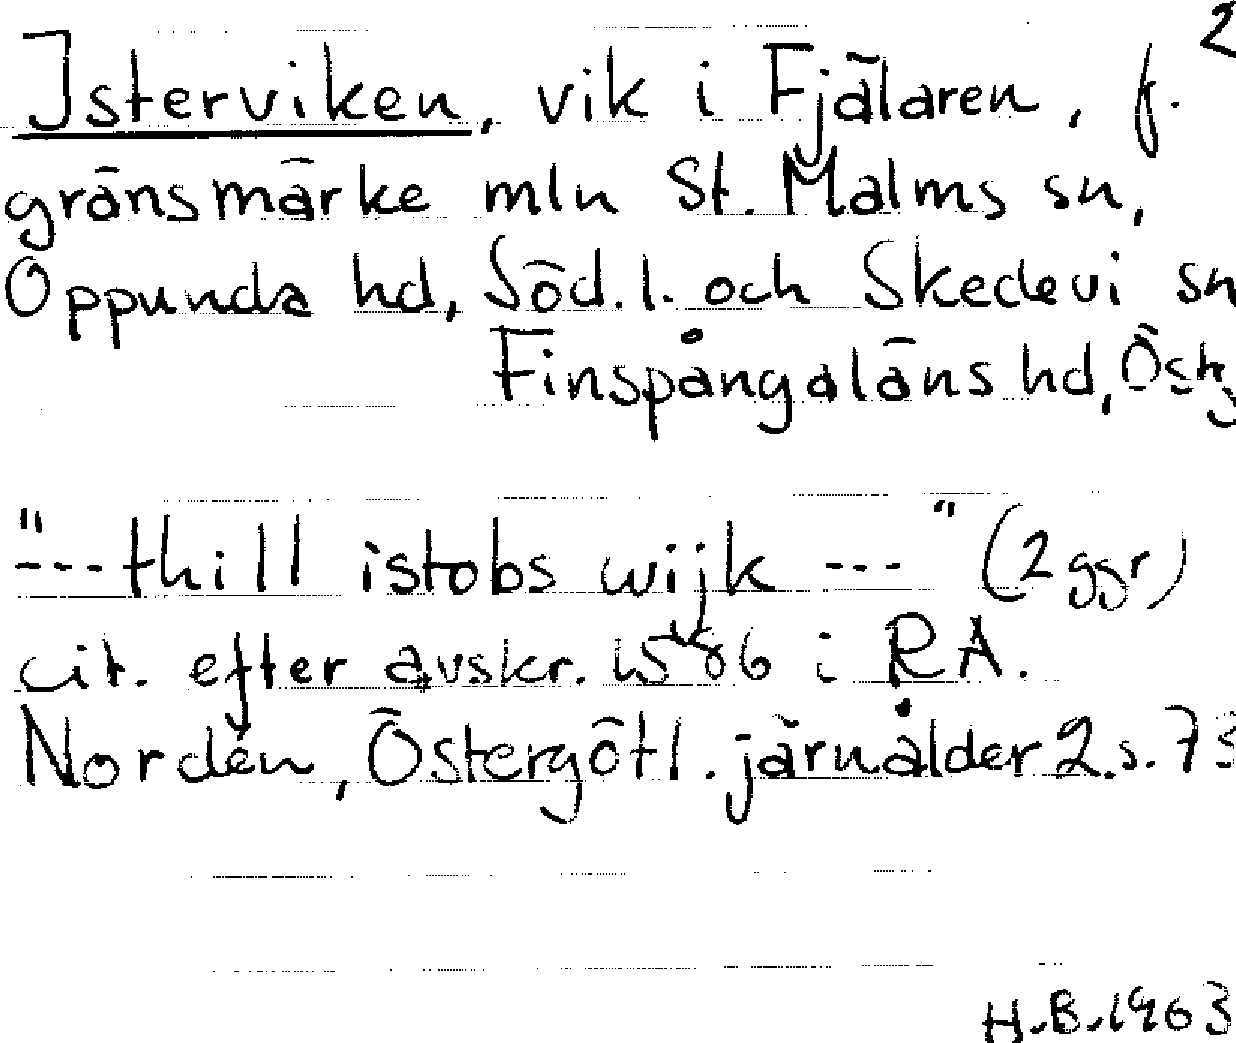 2
Isterviken, vik i Fjälaren, f.
gränsmärke mln St. Malms sn,
Oppunda hd, Söd.l. och Skedevi sn
Finspångaläns hd, Östg
"---thill istobs wijk ---" (2 ggr)
cit. efter avskr. 1586 i RA.
Nordén, Östergötl. järnålder 2.s.73
H.B.1963